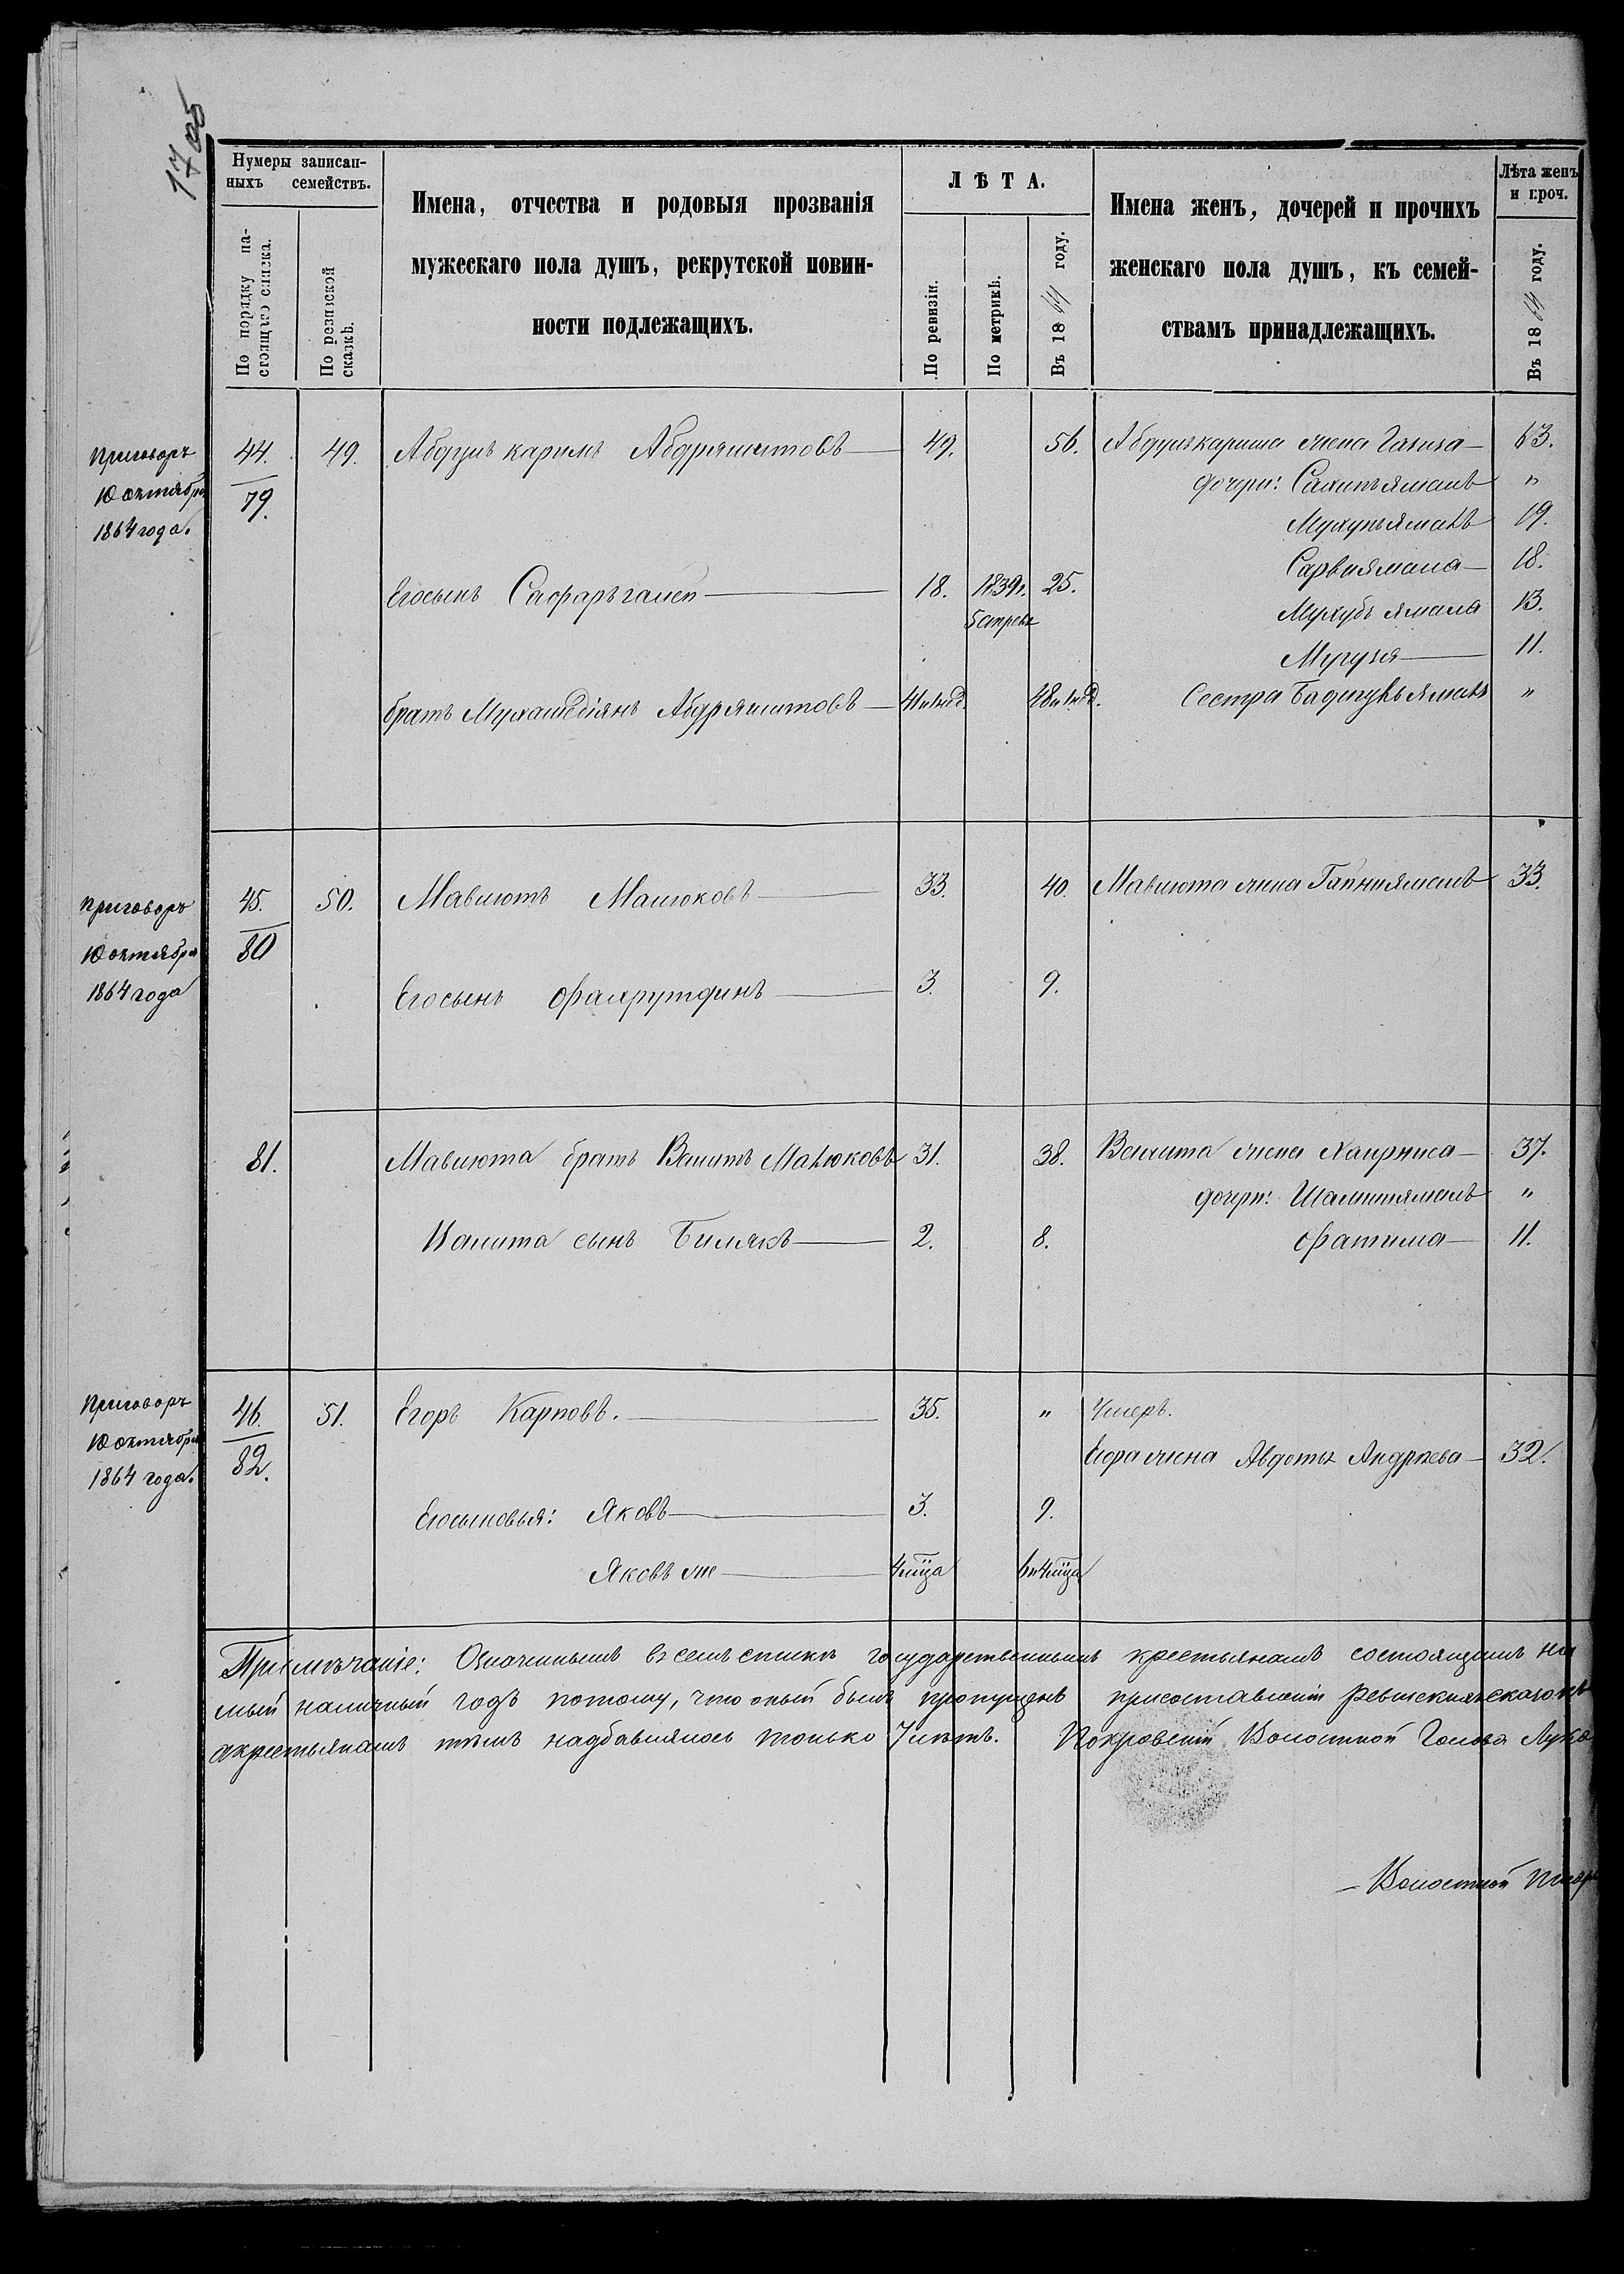 17 об
Нумеры записан-
ныхъ семействъ.
По порядку на-
стоящаго списка.
По ревизской
сказкѣ.
Имена, отчества и родовыя прозванія
мужескаго пола душъ, рекрутской повин-
ности подлежащихъ.
ЛѢТА.
По ревизіи.
По метрикѣ.
Въ 1864 году.
Имена женъ, дочерей и прочихъ
женскаго пола душъ, къ семей-
ствамъ принадлежащихъ.
Лѣта женъ
и проч.
Въ 1864 году.
Приговоръ
10 октября
1864 года.
44. 49. Абдулъ каримъ Абдряшитовъ 49. 56. Абдулъкарима жена Гализа 63.
79.
дочери: "
19.
18.
Его сынъ Сафаръгалей 18. 1839г. 25.
5 апреля
13.
11.
братъ Мухамедіянъ Абдряшитовъ Сестра "
Приговоръ
10 октября
1864 года
45. 50. Мавлютъ Малюковъ 33. 40. Мавлюта жена 33.
80
Его сынъ Фахрутдинъ 3. 9.
81. Мавлюта братъ Валитъ Малюковъ 31. 38. Валита жена Хаирниса 37.
дочери: "
Валита сынъ Билякъ 2. 8. Фатима 11.
Приговоръ
10 октября
1864 года.
46. 51. Егоръ Карповъ. 35. " Умеръ.
82. Егора жена Авдотья Андреева 32.
Его сыновья: Яковъ 3. 9.
Яковъ же 4 мѣца 6 и 4 мѣца
Примѣчаніе: Означеннымъ въ семъ спискѣ государственнымъ крестьянамъ состоящимъ на
мый наличный годъ потому, что оный былъ пропущенъ при составленіи ревизскихъ сказокъ
а крестьянамъ тѣмъ надбавлялось только 7 лѣтъ. Покровскій Волостной Голова Лука
Волостной Писарь